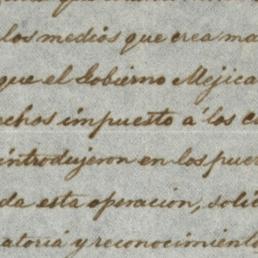 los medios que crea
que el Gobierno Mejica
echos impuesto á los
introdujeron en los puer
da esta operacion, soli
atoria y reconocimiento